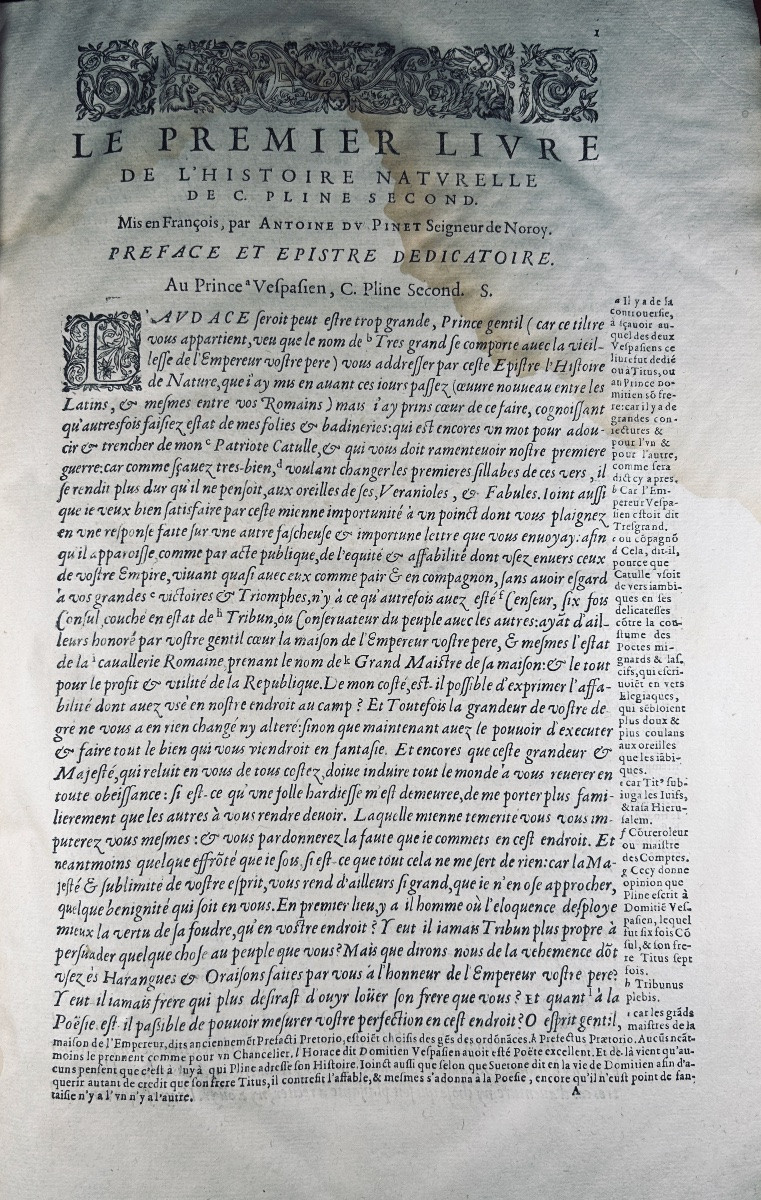 1
LE PREMIER LIVRE
DE L'HISTOIRE NATVRELLE
DE C. PLINE SECOND.
Mis en François, par ANTOINE DV PINET Seigneur de Noroy.
PREFACE ET EPISTRE DEDICATOIRE.
Au Prince ᵃ Vespasien, C. Pline Second. S.
L'AVDACE seroit peut estre trop grande, Prince gentil (car ce tiltre
vous appartient, veu que le nom de ᵇ Tres grand se comporte auec la vieil-
lesse de l'Empereur vostre pere) vous addresser par ceste Epistre l'Histoire
de Nature, que i'ay mis en auant ces iours passez (œuure nouueau entre les
Latins, & mesmes entre vos Romains) mais i'ay prins cœur de ce faire, cognoissant
qu'autresfois faisiez estat de mes folies & badineries: qui est encores vn mot pour adou-
cir & trencher de mon ᶜ Patriote Catulle, & qui vous doit ramenteuoir nostre premiere
guerre: car comme sçauez tres-bien, ᵈ voulant changer les premieres sillabes de ces vers, il
se rendit plus dur qu'il ne pensoit, aux oreilles de ses, Veranioles, & Fabules. Ioint aussi
que ie veux bien satisfaire par ceste mienne importunité à vn poinct dont vous plaignez
en vne response faite sur vne autre fascheuse & importune lettre que vous enuoyay: afin
qu'il apparoisse, comme par acte publique, de l'equité & affabilité dont vsez enuers ceux
de vostre Empire, viuant quasi auec eux comme pair & en compagnon, sans auoir esgard
à vos grandes ᵉ victoires & Triomphes, n'y à ce qu'autrefois auez esté ᶠ Censeur, six fois
Consul, couché en estat de ʰ Tribun, ou Conseruateur du peuple auec les autres: ayãt d'ail-
leurs honoré par vostre gentil cœur la maison de l'Empereur vostre pere, & mesmes l'estat
de la ⁱ cauallerie Romaine, prenant le nom de ᵏ Grand Maistre de sa maison: & le tout
pour le profit & vtilité de la Republique. De mon costé, est-il possible d'exprimer l'affa-
bilité dont auez vsé en nostre endroit au camp? Et Toutefois la grandeur de vostre de-
gré ne vous a en rien changé ny alteré: sinon que maintenant auez le pouuoir d'executer
& faire tout le bien qui vous viendroit en fantasie. Et encores que ceste grandeur &
Majesté, qui reluit en vous de tous costez, doiue induire tout le monde à vous reuerer en
toute obeissance: si est-ce qu'vne folle hardiesse m'est demeuree, de me porter plus fami-
lierement que les autres à vous rendre deuoir. Laquelle mienne temerité vous vous im-
puterez vous mesmes: & vous pardonnerez la faute que ie commets en cest endroit. Et
neantmoins quelque effrõté que ie sois, si est-ce que tout cela ne me sert de rien: car la Ma-
jesté & sublimité de vostre esprit, vous rend d'ailleurs si grand, que ie n'en ose approcher,
quelque benignité qui soit en vous. En premier lieu, y a il homme où l'eloquence desploye
mieux la vertu de sa foudre, qu'en vostre endroit? Y eut il iamais Tribun plus propre à
persuader quelque chose au peuple que vous? Mais que dirons nous de la vehemence dõt
vsez és Harangues & Oraisons faites par vous à l'honneur de l'Empereur vostre pere?
Y eut il iamais frere qui plus desirast d'ouyr loüer son frere que vous? Et quant ˡ à la
Poësie est-il passible de pouuoir mesurer vostre perfection en cest endroit? O esprit gentil,
a Il y a de la
controuersie,
à sçauoir au-
quel des deux
Vespasiens ce
liure fut dedié
ou à Titus, ou
au Prince Do-
mitien sõ fre-
re: car il y a de
grandes con-
iectures &
pour l'vn &
pour l'autre,
comme sera
dict cy apres.
b Car l'Em-
pereur Vespa-
sien estoit dit
Tresgrand.
c ou cõpagnõ
d Cela, dit-il,
pource que
Catulle vsoit
de vers iambi-
ques en ses
delicatesses
cõtre la cou-
stume des
Poëtes mi-
gnards & las-
cifs, qui escri-
uoiẽt en vers
Elegiaques,
qui sẽbloient
plus doux &
plus coulans
aux oreilles
que les iãbi-
ques.
e car Tit⁹ sub-
iuga les Iuifs,
& rasa Hieru-
salem.
f Cõteroleur
ou maistre
des Comptes.
g Cecy donne
opinion que
Pline escrit à
Domitiẽ Ves-
pasien, lequel
fut six fois Cõ
sul, & son fre-
re Titus sept
fois.
h Tribunus
plebis.
i car les grãds
maistres de la
maison de l'Empereur, dits anciennemẽt Prefacti Pretorio, estoiẽt choisis des gẽs des ordõnãces. à Præfectus Prætorio. Aucũs neãt-
moins le prennent comme pour vn Chancelier. l Horace dit Domitien Vespasien auoit esté Poëte excellent. Et de là vient qu'au-
cuns pensent que c'est à luy à qui Pline adresse son Histoire. Ioinct aussi que selon que Suetone dit en la vie de Domitien afin d'a-
querir autant de credit que son frere Titus, il contrefit l'affable, & mesmes s'adonna à la Poesie, encore qu'il n'eust point de fan-
taisie n'y a l'vn n'y a l'autre.
A